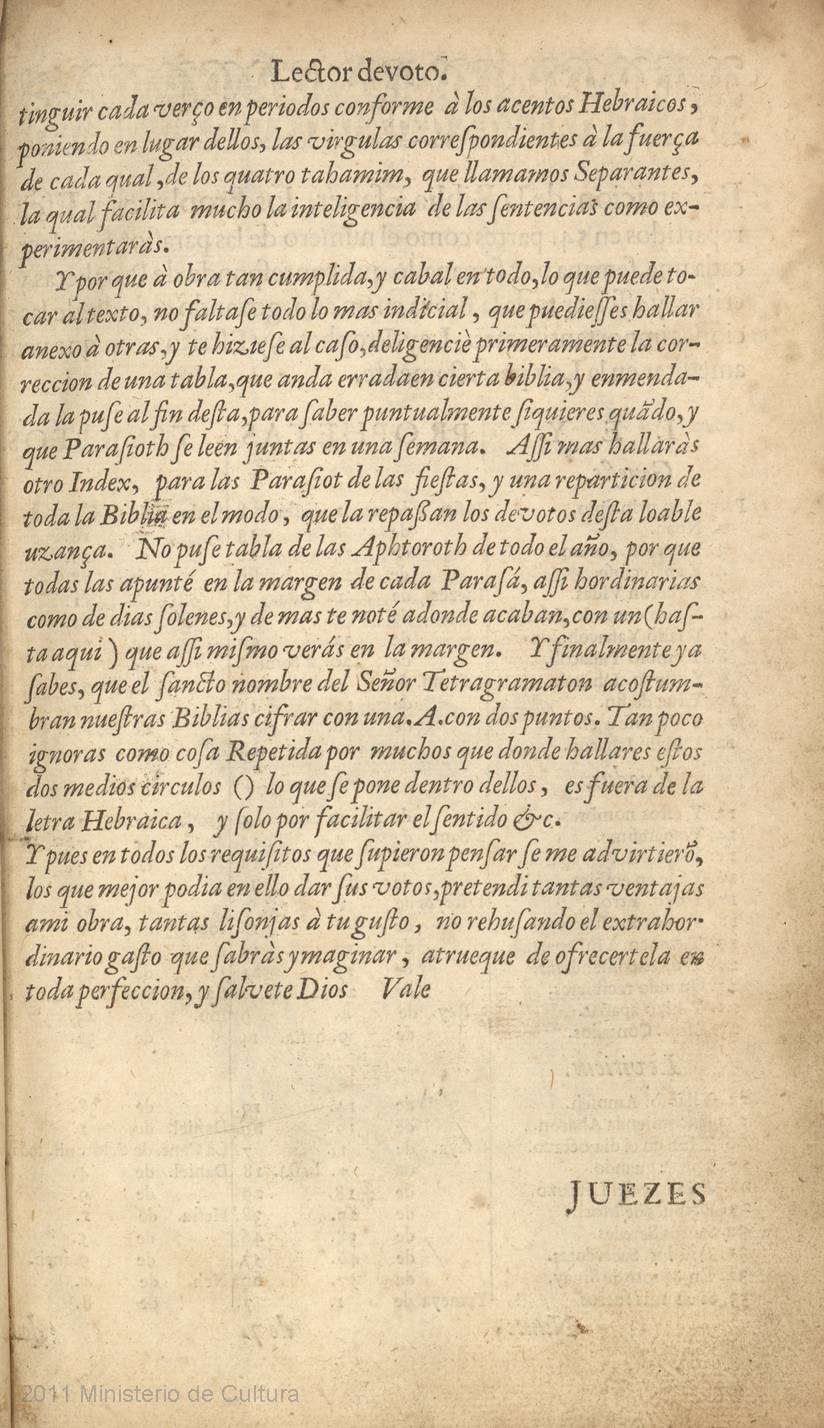 Lector devoto.
tinguir cada verço en periodos conforme à los acentos Hebraicos,
poniendo en lugar dellos, las virgulas correſpondientes à la fuerça
de cada qual, de los quatro tahamim, que llamamos Separantes,
la qual facilita mucho la inteligencia de las ſentencias como ex-
perimentaràs.
Y por que à obra tan cumplida, y cabal en todo, lo que puede to-
car al texto, no faltaſe todo lo mas indicial, que puedieſſes hallar
anexo à otras, y te hizieſe al caſo, deligenciè primeramente la cor-
reccion de una tabla, que anda errada en cierta biblia, y enmenda-
da la puſe al fin deſta, para ſaber puntualmente ſi quieres quãdo, y
que Paraſioth ſe leen juntas en una ſemana. Aſſi mas hallaràs
otro Index, para las Paraſiot de las fieſtas, y una reparticion de
toda la Biblia en el modo, que la repaßan los devotos deſta loable
uzança. No puſe tabla de las Aphtoroth de todo el año, por que
todas las apunté en la margen de cada Paraſá, aſſi hordinarias
como de dias ſolenes, y de mas te noté adonde acaban, con un (haſ-
ta aqui) que aſſi miſmo verás en la margen. Y finalmente ya
ſabes, que el ſancto nombre del Señor Tetragramaton acoſtum-
bran nueſtras Biblias cifrar con una .A. con dos puntos. Tan poco
ignoras como coſa Repetida por muchos que donde hallares eſtos
dos medios circulos () lo que ſe pone dentro dellos, es fuera de la
letra Hebraica, y ſolo por facilitar el ſentido &c.
Y pues en todos los requiſitos que ſupieron penſar ſe me advirtierõ,
los que mejor podia en ello dar ſus votos, pretendi tantas ventajas
ami obra, tantas liſonjas à tu guſto, no rehuſando el extrahor-
dinario gaſto que ſabràs ymaginar, atrueque de ofrecertela en
toda perfeccion, y ſalvete Dios Vale
JUEZES
2011 Ministerio de Cultura